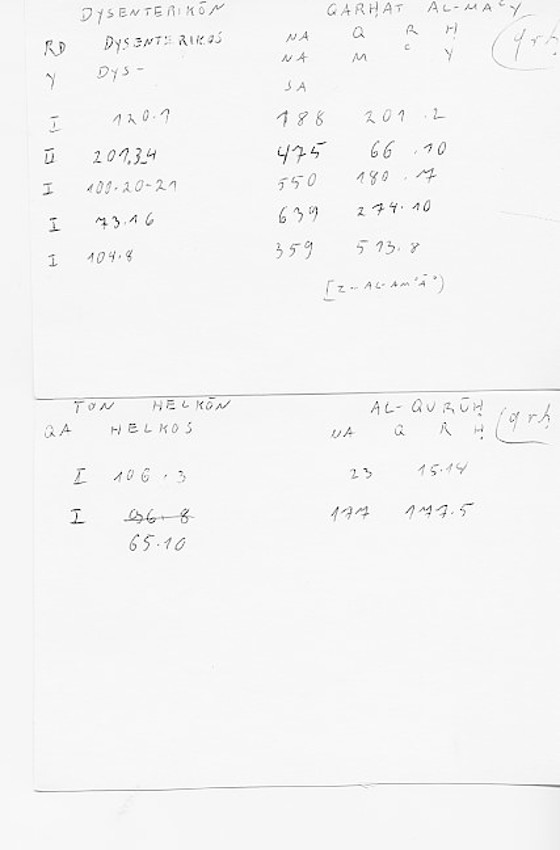 DYSENTERIKŌN QARḤAT AL-MAʿY
RD DYSENTERIKOS NA Q R Ḥ (qrḥ
Y DYS- NA M ʿ Y
SA
I 120.1 188 201.2
II 201.3,4 475 66.10
I 100.20-21 550 180.7
I 73.16 639 274.10
I 104.8 359 513.8
TON HELKŌN AL-QURŪḤ
QA HELKOS NA Q R Ḥ (qrḥ
I 106.3 23 15.14
I 96.8 177 177.5
65.10